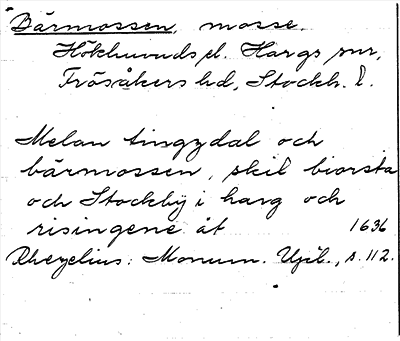 Bärmossen, mosse.
Hökhuvuds sn. Hargs snr,
Frösåkers hd, Stockh. l.
Melan tingzdal och
bärmossen, skil biorsta
och Stockbÿ i harg och
risingene åt 1636
Rhezelius: Monum. Upl., s. 112.